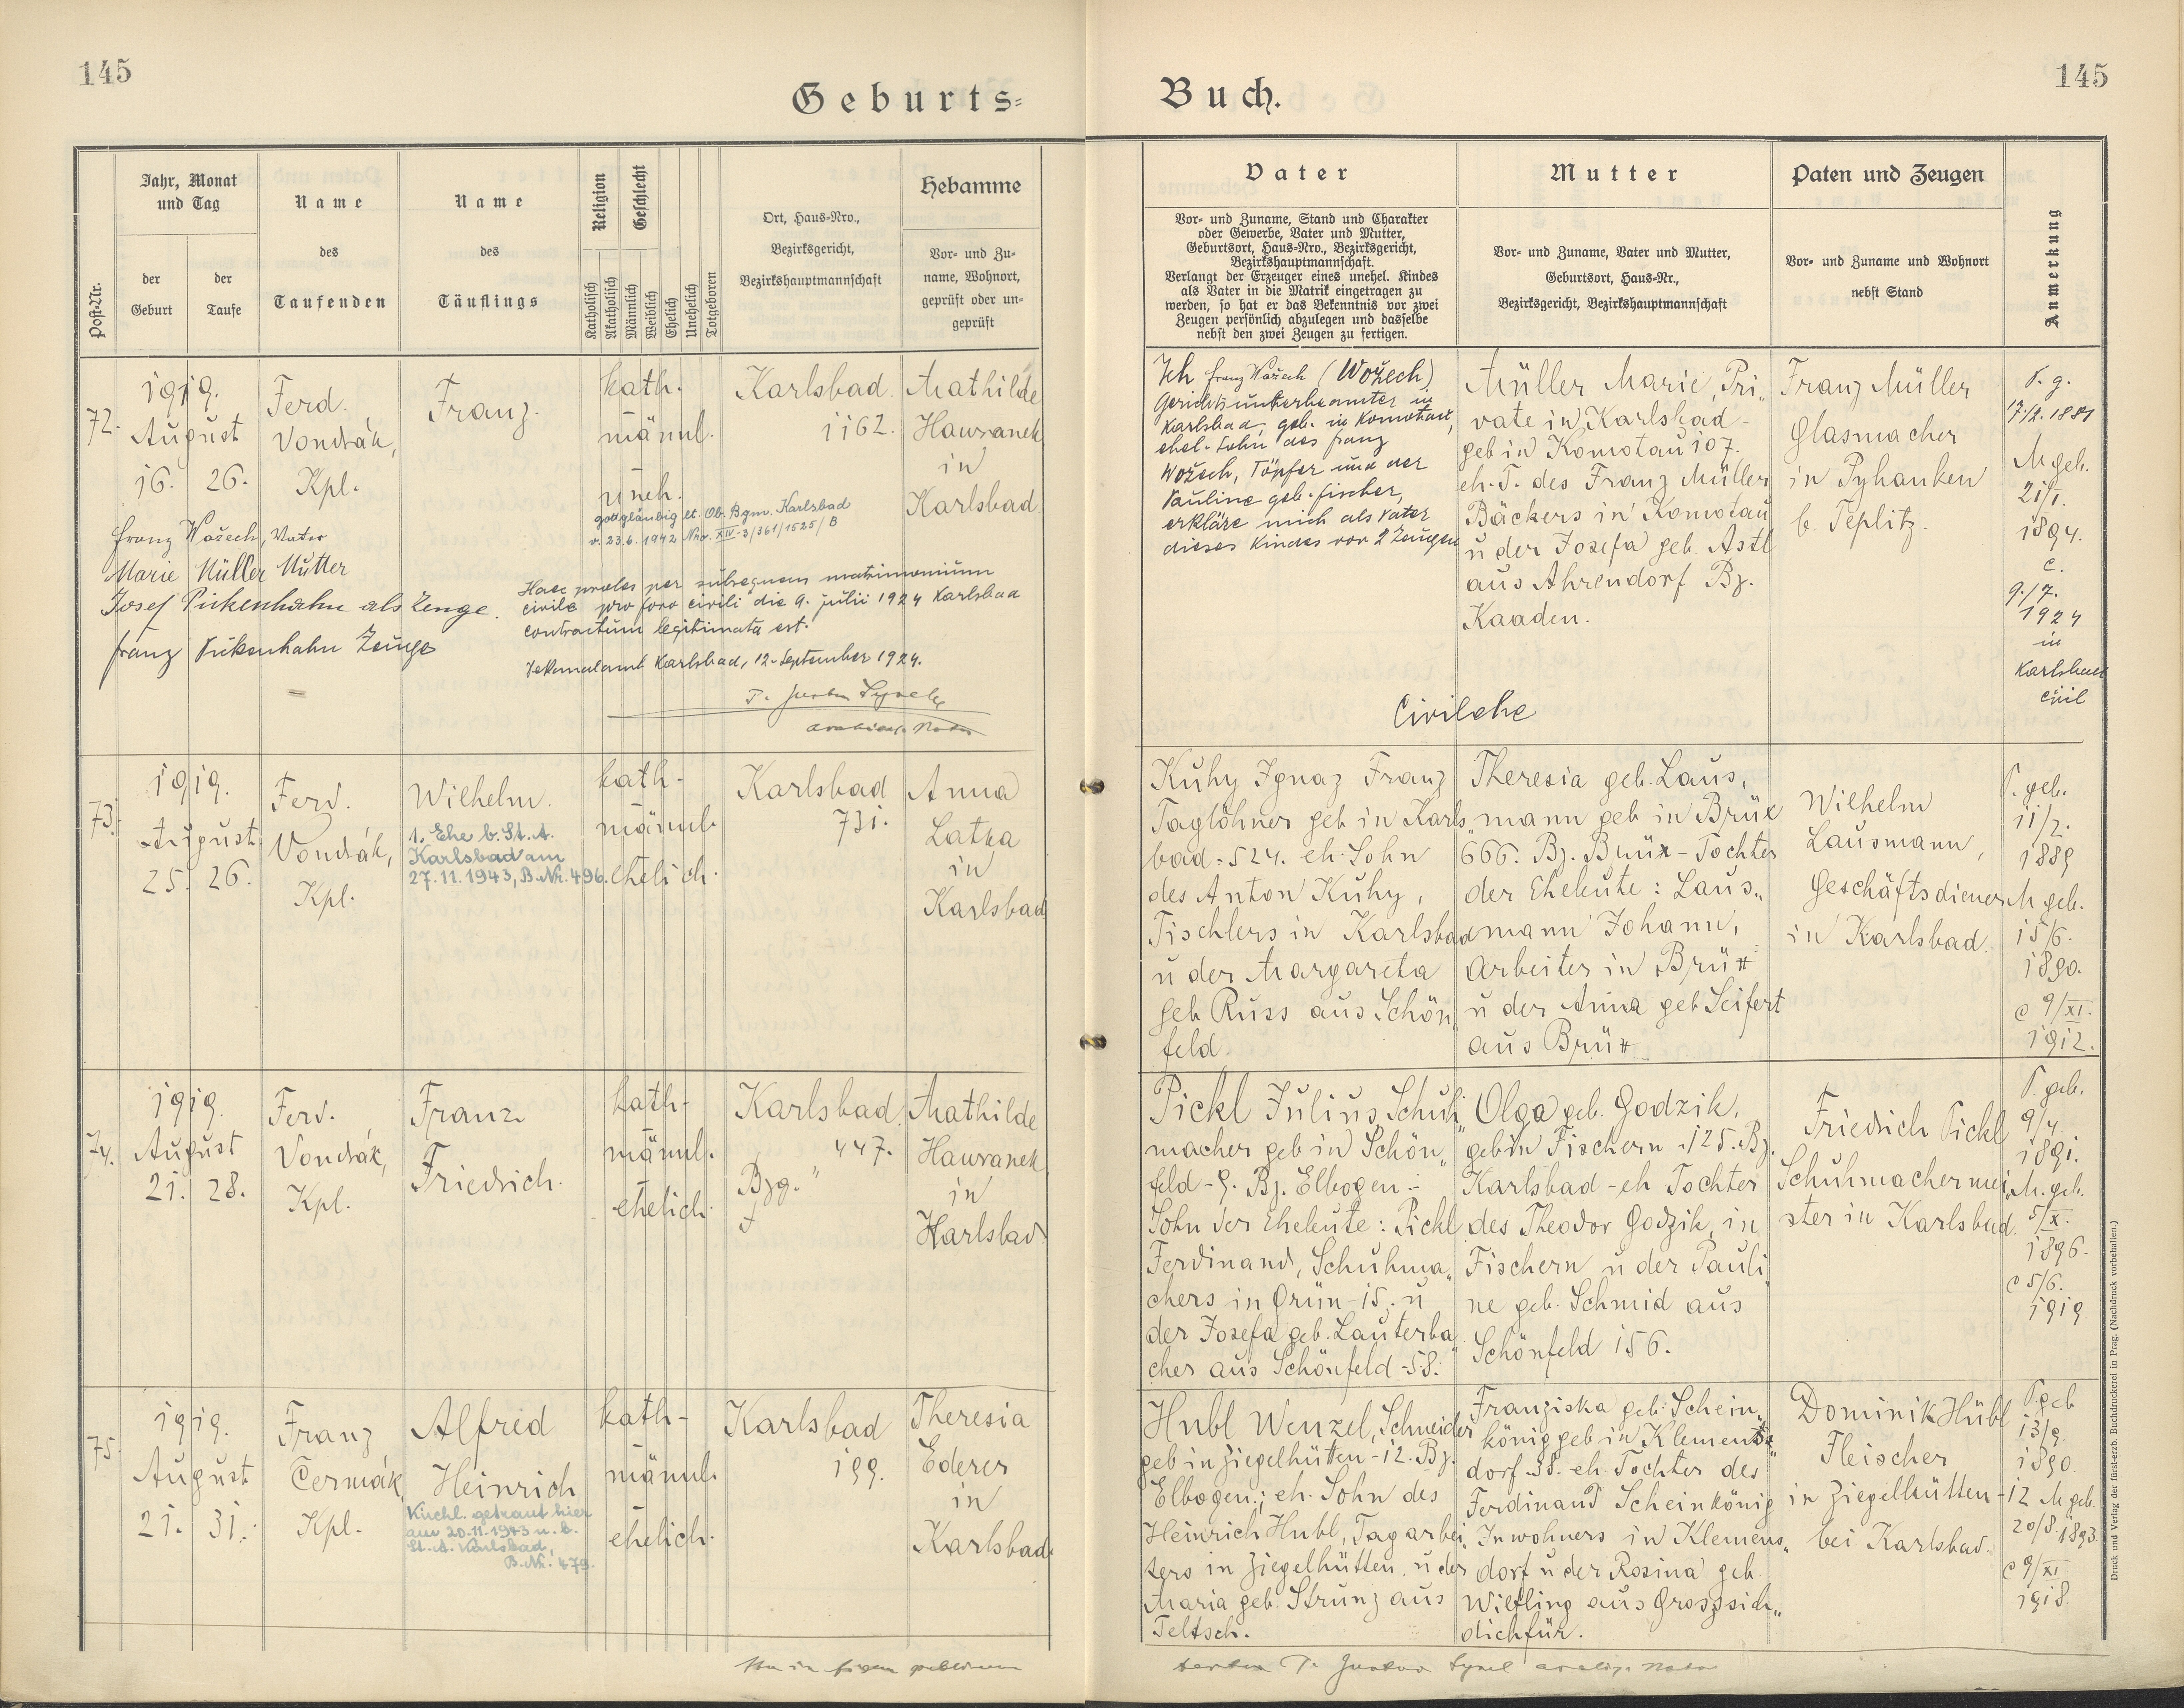 145
Geburts=
Jahr, Monat und Tag
der Geburt
der Taufe
Name des Taufenden
Name des Täuflings
Religion
Geschlecht
Katholisch
Akatholisch
Männlich
Weiblich
Ehelich
Unehelich
Totgeboren
Post-Nr.
Ort, Haus-Nro.,
Bezirksgericht,
Bezirkshauptmannschaft
Hebamme
Vor- und Zu-
name, Wohnort,
geprüft oder un-
geprüft
72.
1919.
August
16. 26.
Ferd.
Vondrák,
Kpl.
Franz.
kath.
männl.
uneh.
gottgläubig lt. Ob. Bgm. Karlsbad
v. 23.6.1942 Nro. XIV-3/361/1525/B
Karlsbad
1162.
Mathilde
Hawranek
in
Karlsbad.
Franz Wožech, Vater
Marie Müller Mutter
Josef Pickenhahn als Zeuge.
Franz Pickenhahn Zeuge
Haec proles per subsequens matrimonium
civile pro foro civili die 9. julii 1924 Karlsbad
contractum legitimata est.
Karlsbad, 12. September 1924.
73.
1919.
August
25. 26.
Ferd.
Vondrák,
Kpl.
Wilhelm.
1. Ehe b. St. A.
Karlsbad am
27.11.1943, B. Nr. 496.
kath-
männl.
ehelich.
Karlsbad
731.
Anna
Latka
in
Karlsbad
74.
1919.
August
21. 28.
Ferd.
Vondrák,
Kpl.
Franz
Friedrich.
kath-
männl.
ehelich.
Karlsbad.
447.
Bzg. "
Mathilde
Hawranek
in
Karlsbad.
75.
1919.
August
21. 31.
Franz
Čermák
Kpl.
Alfred
Heinrich
Kirchl. getraut hier
am 20.11.1943 u. b.
St. A. Karlsbad,
B. Nr. 479.
kath-
männl.
ehelich.
Karlsbad
199.
Theresia
Ederer
in
Karlsbad.
145
Buch.
Vater
Vor- und Zuname, Stand und Charakter
oder Gewerbe, Vater und Mutter,
Geburtsort, Haus-Nro., Bezirksgericht,
Bezirkshauptmannschaft.
Verlangt der Erzeuger eines unehel. Kindes
als Vater in die Matrik eingetragen zu
werden, so hat er das Bekenntnis vor zwei
Zeugen persönlich abzulegen und dasselbe
nebst den zwei Zeugen zu fertigen.
Mutter
Vor- und Zuname, Vater und Mutter,
Geburtsort, Haus-Nr.,
Bezirksgericht, Bezirkshauptmannschaft
Paten und Zeugen
Vor- und Zuname und Wohnort
nebst Stand
Anmerkung
Ich Franz Wožech (Wožech)
Gerichtsunterbeamter in
Karlsbad, geb. in Komotau,
ehel. Sohn des Franz
Wožech, Töpfer und der
Pauline geb. Fischer,
erkläre mich als Vater
dieses Kindes vor 2 Zeugen
Müller Marie, Pri„
vate in Karlsbad-
geb in Komotau 107.
eh. T. des Franz Müller
Bäckers in Komotau
u der Josefa geb. Astl
aus Ahrendorf Bz.
Kaaden.
Franz Müller
Glasmacher
in Pyhanken
b. Teplitz.
P. g.
17/2. 1881
M geb.
21/1.
1894.
c.
9./7.
1924
in
Karlsbad
civil
Civilehe
Kuhy Ignaz Franz
Taglöhner geb in Karls„
bad-524. eh. Sohn
des Anton Kuhy,
Tischlers in Karlsbad
u der Margareta
geb Russ aus Schön„
feld.
Theresia geb. Laus„
mann geb in Brüx
666. Bz. Brüx-Tochter
der Eheleute: Laus„
mann Johann,
Arbeiter in Brüx
u der Anna geb Seifert
aus Brüx
Wilhelm
Lausmann,
Geschäftsdiener
in Karlsbad.
P. geb.
11/2.
1889
M geb.
15/6.
1890.
c 9/XI.
1912.
Pickl Julius Schuh„
macher geb in Schön„
feld-9. Bz. Elbogen-
Sohn der Eheleute: Pickl
Ferdinand, Schuhma„
chers in Grün-15. u
der Josefa geb. Lauterba„
cher aus Schönfeld-58.
Olga geb. Godzik,
geb in Fischern-125. Bz.
Karlsbad-eh Tochter
des Theodor Godzik, in
Fischern u der Pauli„
ne geb. Schmid aus
Schönfeld 156.
Friedrich Pickl
Schuhmachermei„
ster in Karlsbad.
P. geb.
9/4
1891.
M. geb.
5/X.
1896.
c 5/6.
1919
Hubl Wenzel, Schneider
geb in Ziegelhütten-12. Bz.
Elbogen; eh. Sohn des
Heinrich Hubl, Tagarbei„
ters in Ziegelhütten. u der
Maria geb. Strunz aus
Teltsch.
Franziska geb. Schein„
könig geb in Klemens„
dorf 38. eh. Tochter des
Ferdinand Scheinkönig
Inwohners in Klemens„
dorf u der Rosina geb
Wiefling aus Grosssich„
dichfür.
Dominik Hübl
Fleischer
in Ziegelhütten-12
bei Karlsbad.
P. geb
13/9.
1890.
M geb.
20/8. 1893.
c 9/XI
1918.
Druck und Verlag der fürsterzb. Buchdruckerei in Prag. (Nachdruck vorbehalten.)